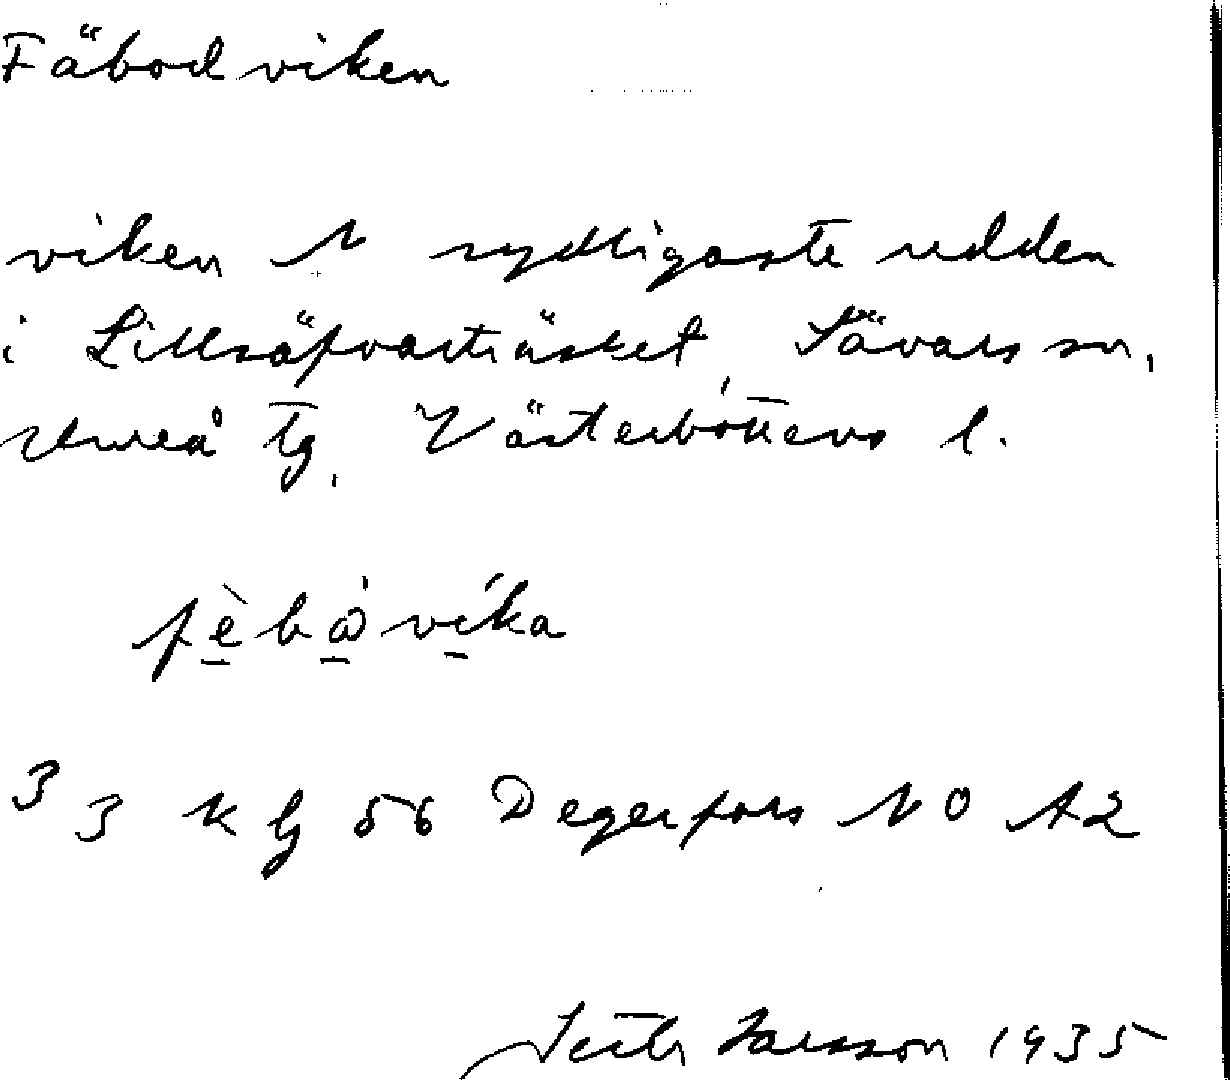 Fäbodviken
viken N sydligaste udden
i Lillsäfvarträsket, Sävars sn,
Umeå tg, Västerbottens l.
fèbåvíka
3 3 K bj 56 Degerfors NO A2
Larsson 1935